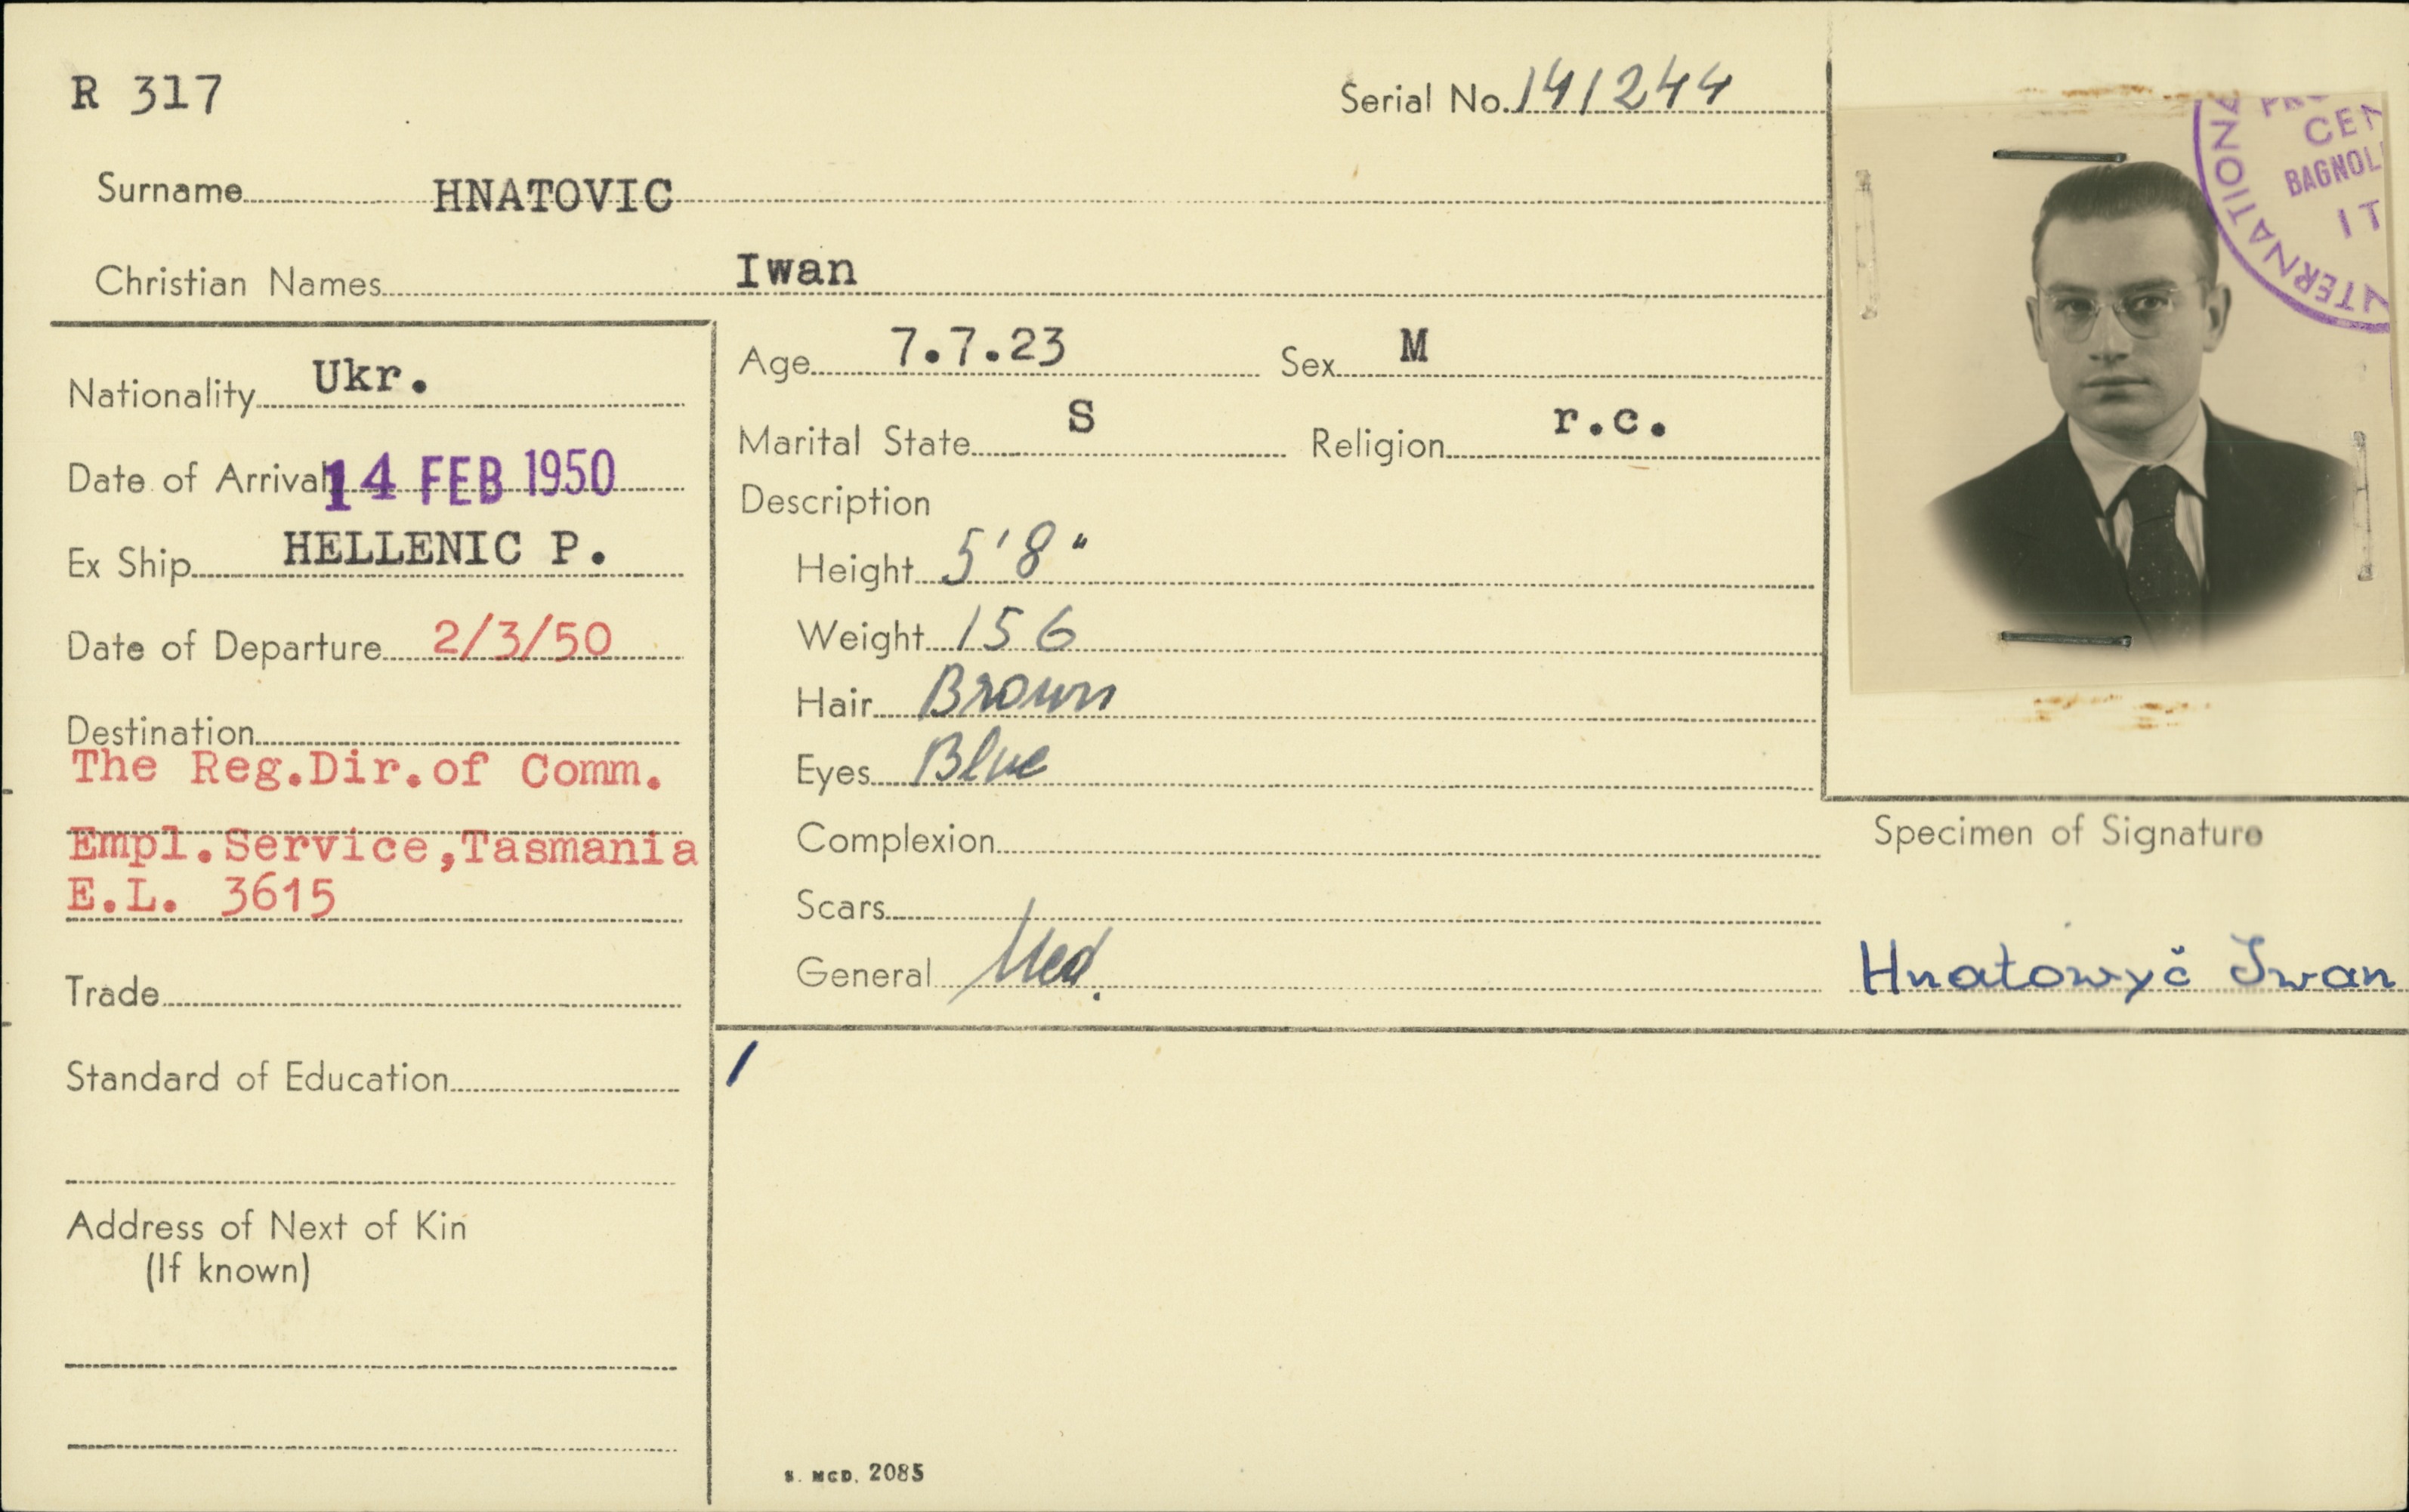 R 317
Serial No. 141244
Surname HNATOVIC
Christian Names Iwan
Nationality Ukr.
Date of Arrival 14 FEB 1950
Ex Ship HELLENIC P.
Date of Departure 2/3/50
Destination
The Reg.Dir.of Comm.
Empl.Service,Tasmania
E.L. 3615
Trade
Standard of Education
Address of Next of Kin
(If known)
Age 7.7.23 Sex M
Marital State S Religion r.c.
Description
Height 5'8"
Weight 156
Hair Brown
Eyes Blue
Complexion
Scars
General Med.
CEN
BAGNOL
IT
TERNATIONA
Specimen of Signature
Hnatowyč Iwan
S. MCD. 2085